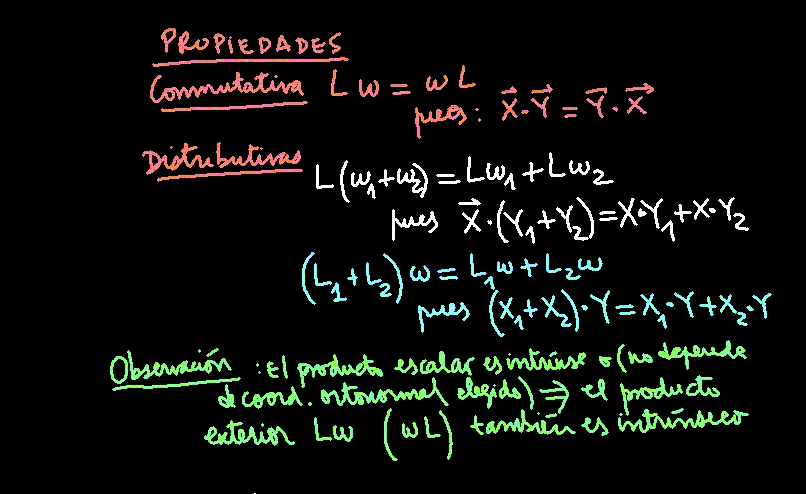 PROPIEDADES
Conmutativa L ω = ω L
pues: X⃗·Y⃗ = Y⃗·X⃗
Distributivas L(ω₁+ω₂) = Lω₁ + Lω₂
pues X⃗·(Y₁+Y₂) = X·Y₁ + X·Y₂
(L₁+L₂) ω = L₁ω + L₂ω
pues (X₁+X₂)·Y = X₁·Y + X₂·Y
Observación : El producto escalar es intrínseco (no depende
de coord. ortonormal elegido) ⇒ el producto
exterior Lω (ωL) también es intrínseco